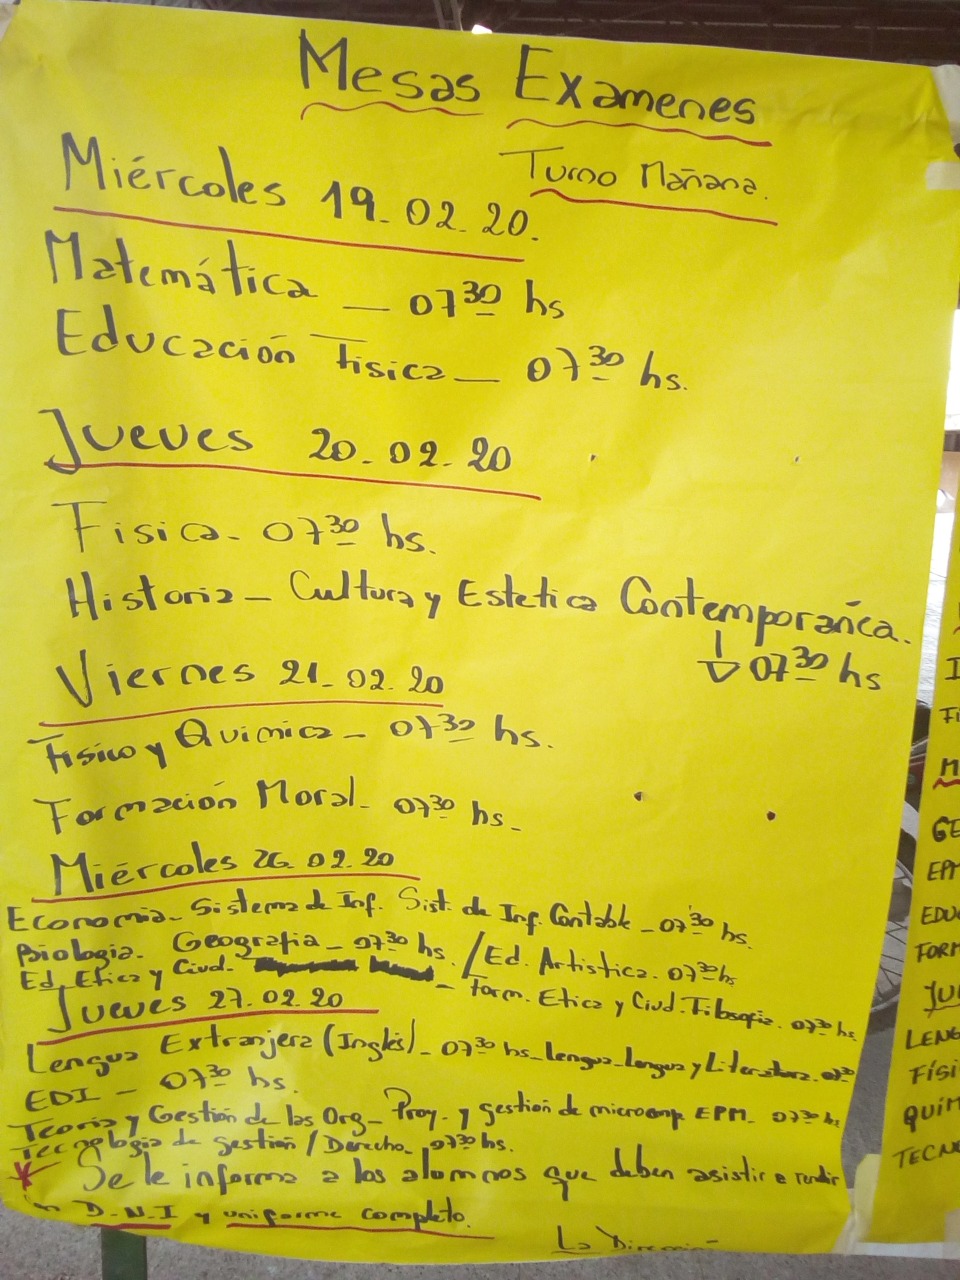 Mesas Examenes
Turno Mañana.
Miércoles 19.02.20.
Matemática _ 07³⁰ hs
Educación Fisica _ 07³⁰ hs.
Jueves 20.02.20
Fisica - 07³⁰ hs.
Historia - Cultura y Estetica Contemporanea.
07³⁰ hs
Viernes 21.02.20
Fisico y Quimica - 07³⁰ hs.
Formación Moral - 07³⁰ hs -
Miércoles 26.02.20
Economia - Sistema de Inf. Sist. de Inf. Contable - 07³⁰ hs.
Biologia. Geografia - 07³⁰ hs. / Ed. Artistica. 07³⁰ hs
Ed. Etica y Ciud. - Form. Etica y Ciud. Filosofia. 07³⁰ hs
Jueves 27.02.20
Lengua Extranjera (Inglés) - 07³⁰ hs - Lengua - Lengua y Literatura. 07³⁰
EDI - 07³⁰ hs.
Teoria y Gestión de las Org - Proy. y gestión de microemp EPM. 07³⁰ hs
Tecnologia de gestión / Derecho - 07³⁰ hs.
* Se le informa a los alumnos que deben asistir a rendir
D.N.I y uniforme completo.
La Dirección
GE
EPM
EDU
FORM
JU
LENG
FÍSI
QUÍM
TECN